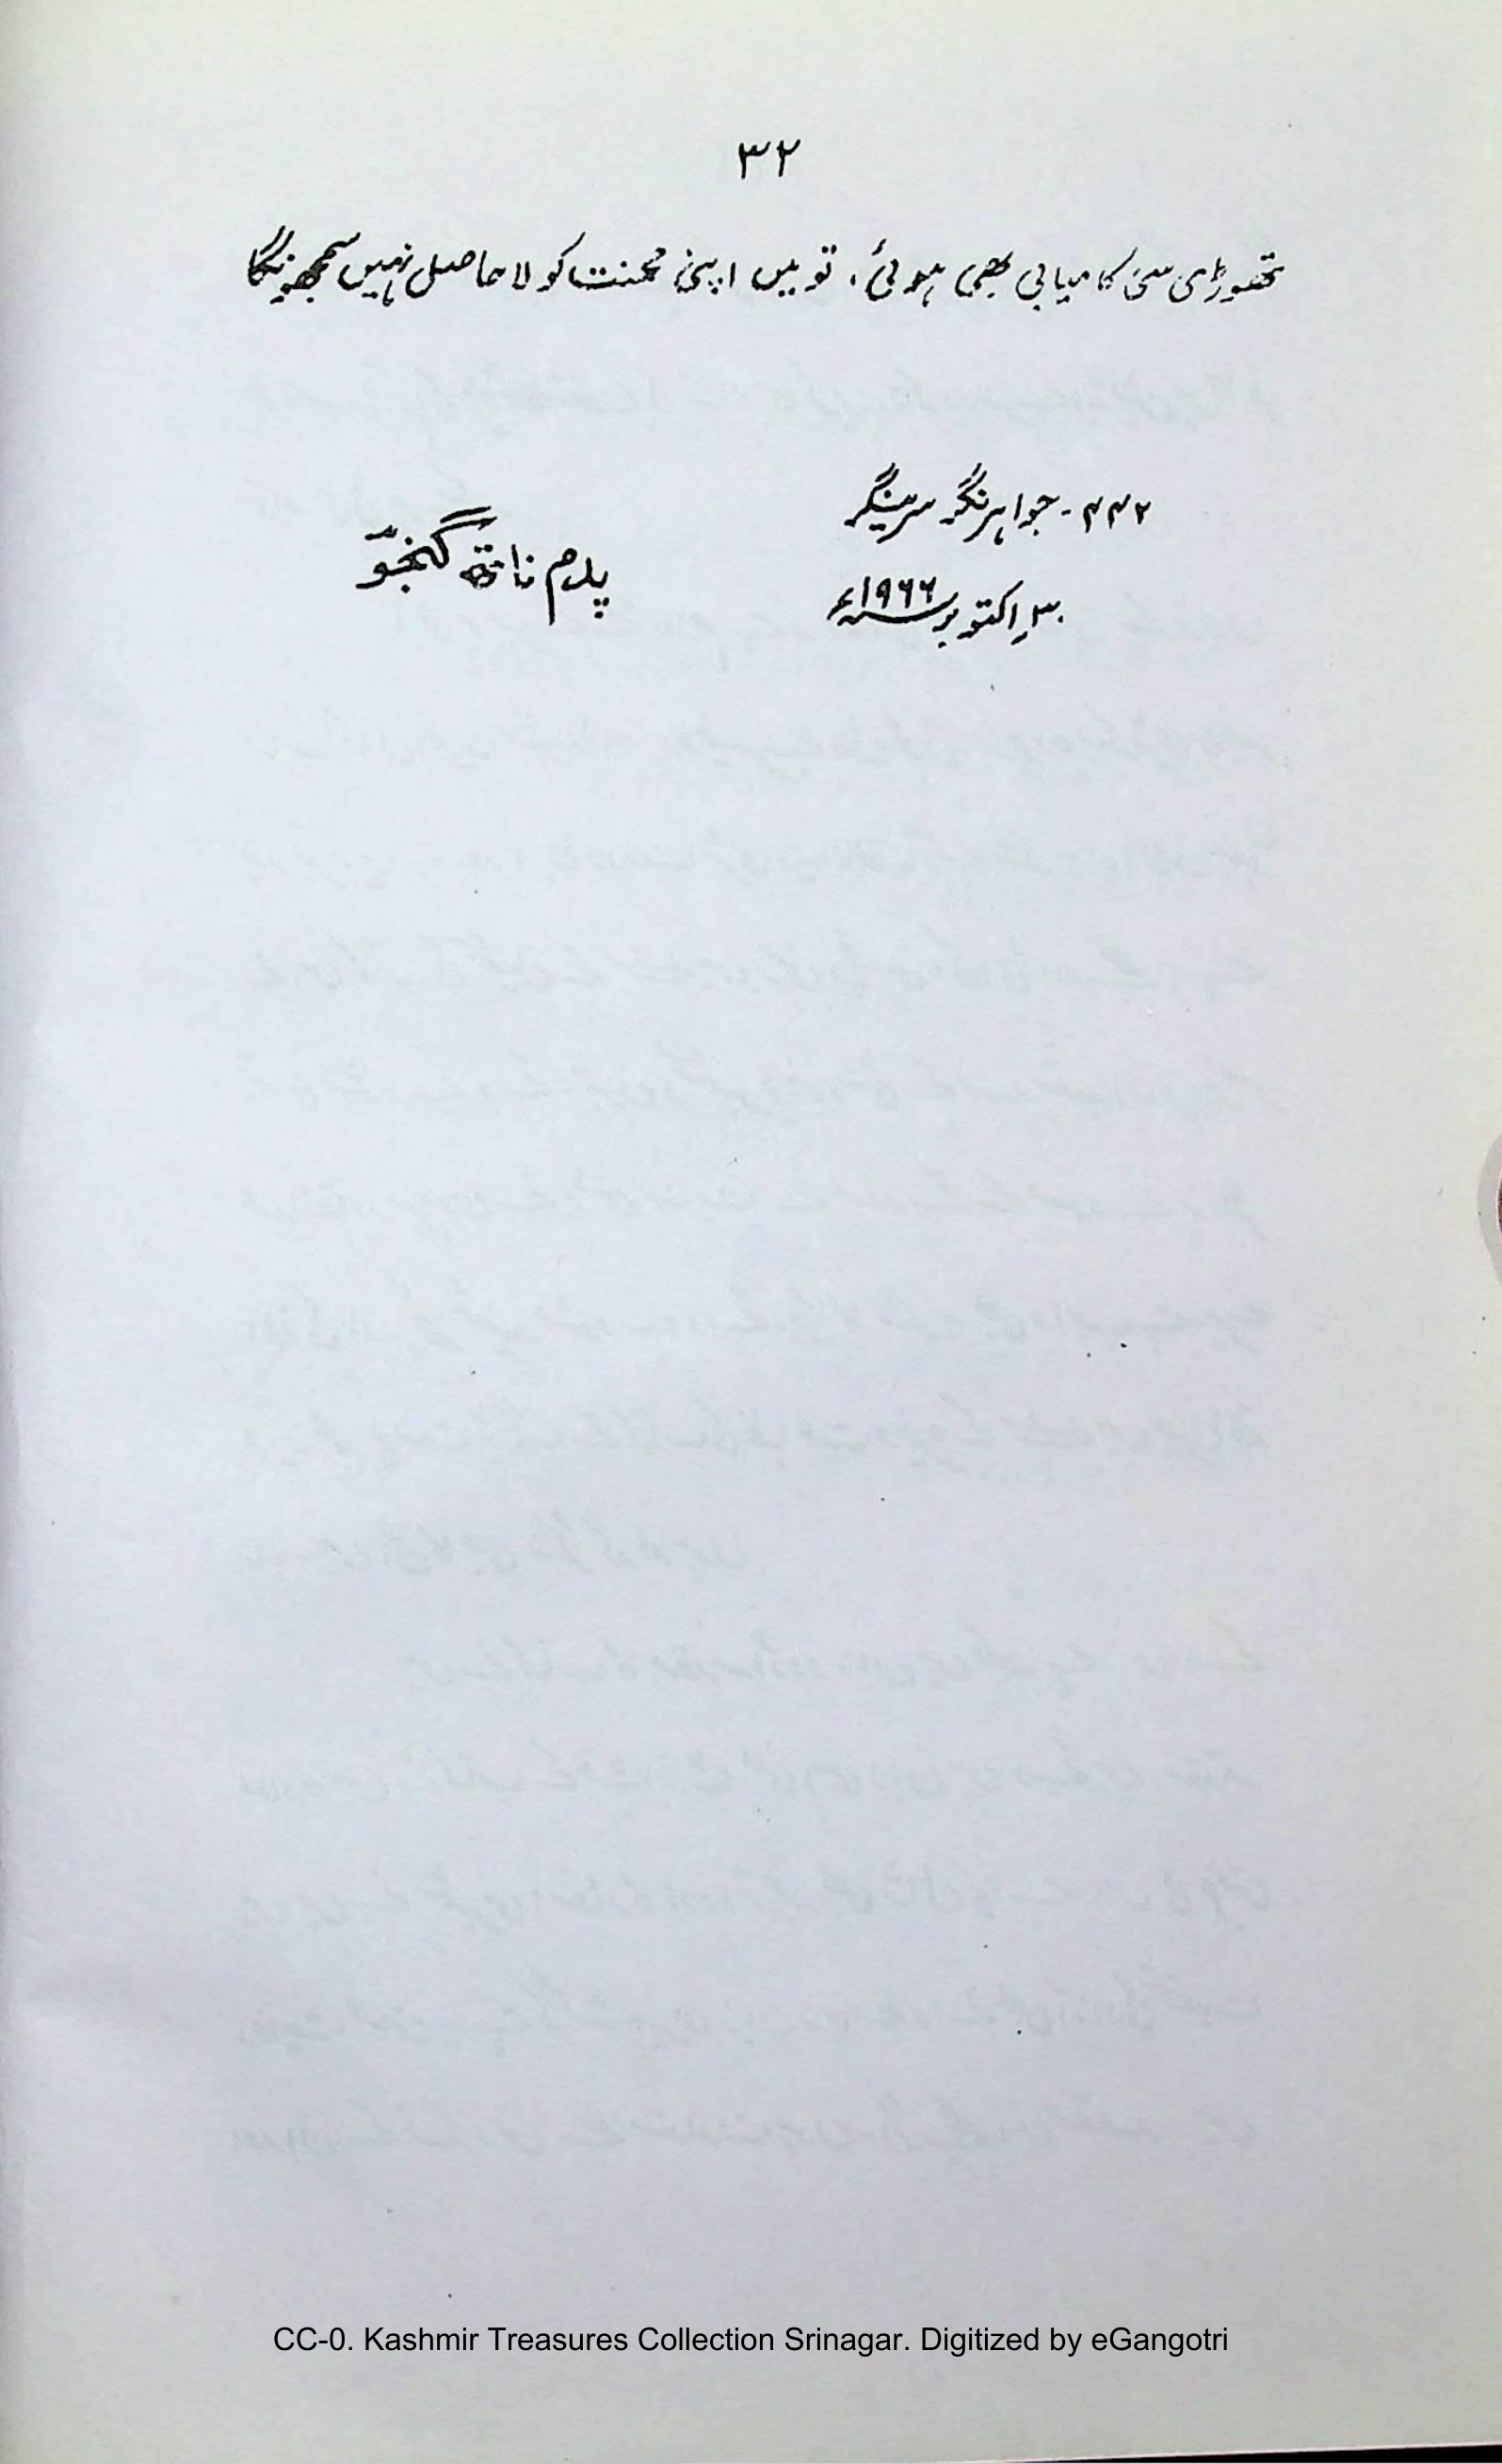 ۳۲
تھوڑی سی کامیابی بھی ہوئی، تو میں اپنی محنت کو لا حاصل نہیں سمجھونگا
۴۴۲- جواہر نگر سرینگر
۳۰ اکتوبر ۱۹۶۶ء
پدم ناتھ گنجو
CC-0. Kashmir Treasures Collection Srinagar. Digitized by eGangotri